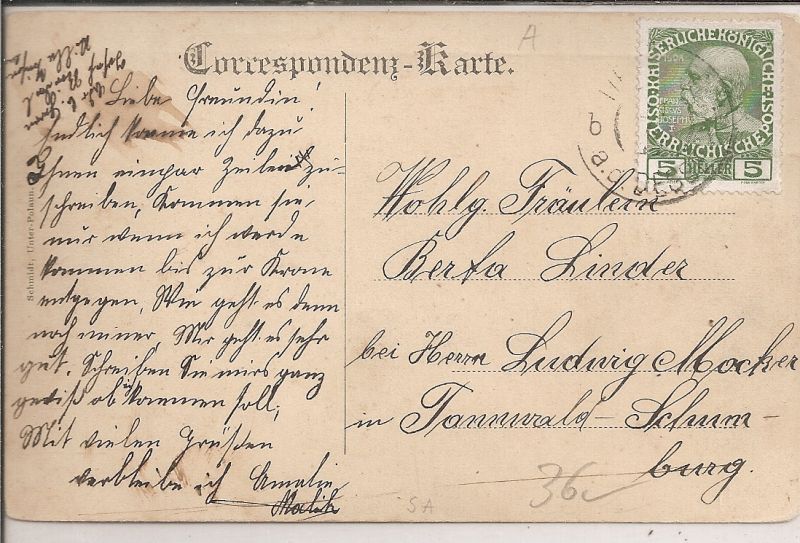 Correspondenz-Karte.
Liebe Freundin!
Endlich komme ich dazu
Ihnen einpar Zeilen zu-
schreiben, Kommen sie
nur wenn ich werde
kommen bis zur Krone
entgegen, Wie geht es denn
noch immer, Mir geht es sehr
gut. Schreiben Sie mirs ganz
gewiß ob ich kommen soll;
Mit vielen Grüßen
verbleibe ich Amalie
Malik
Wohlg. Fräulein
Berta Linder
bei Herrn Ludwig Mocker
in Tannwald-Schum-
burg.
36
A
SA
Schmidt, Unter-Polaun.
KAISERLICHE KÖNIGLICHE ÖSTERREICHISCHE POST
1908
FRAN
CISCVS
JOSEPHVS
I
5 HELLER 5